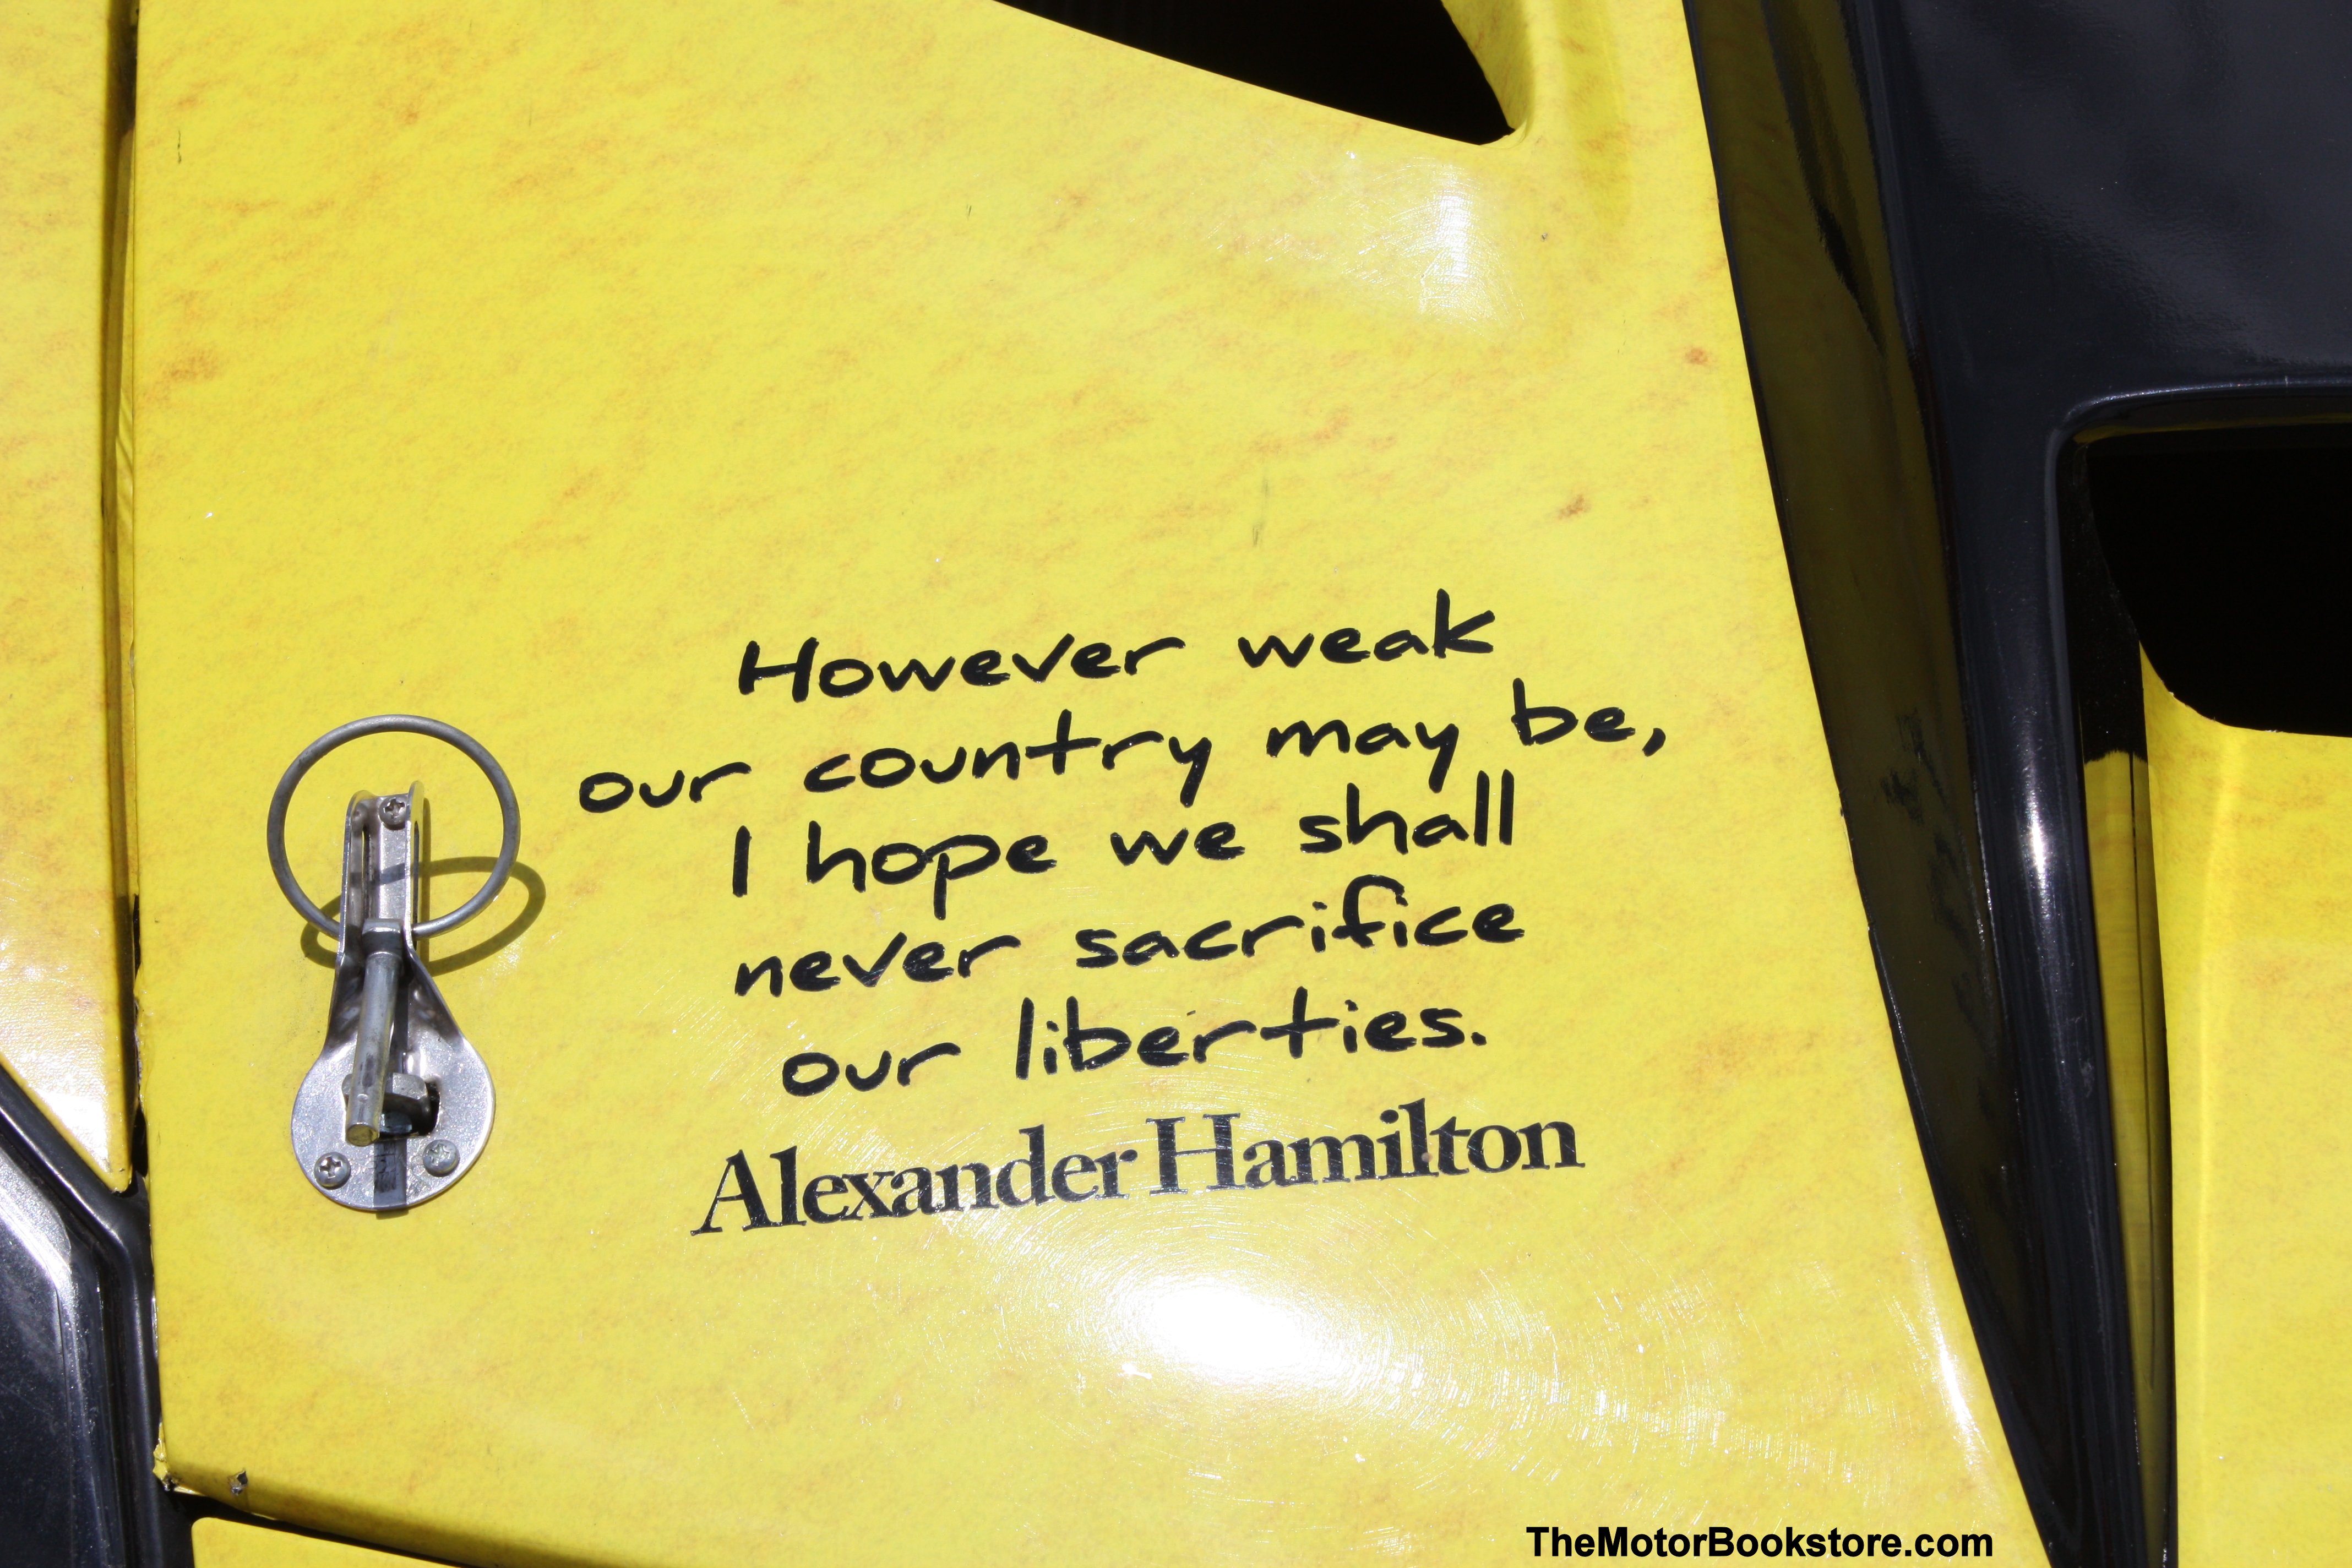 However weak
our country may be,
I hope we shall
never sacrifice
our liberties.
Alexander Hamilton
TheMotorBookstore.com